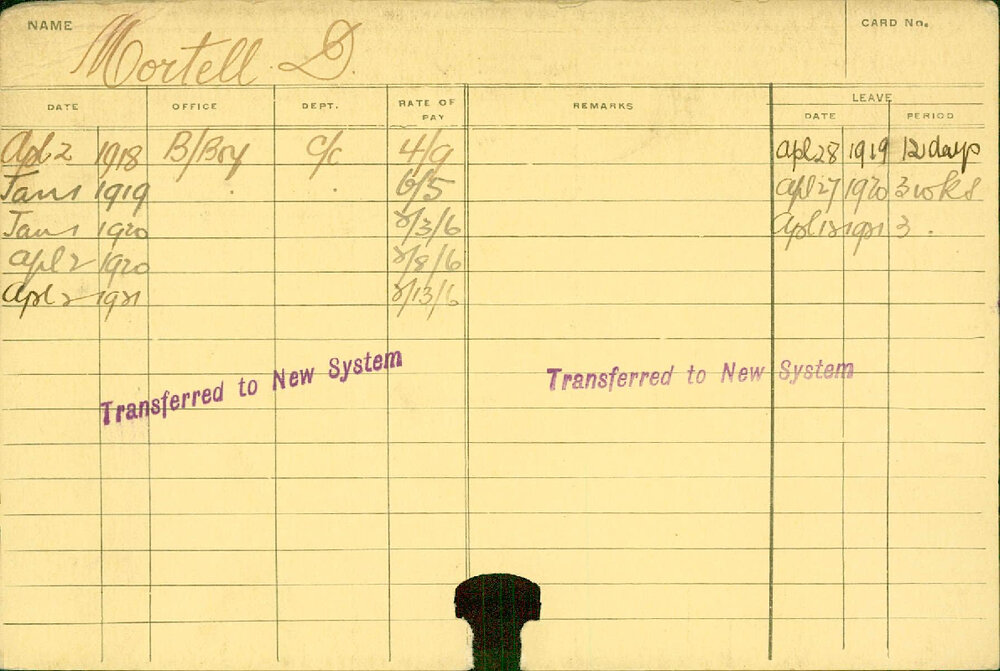 NAME Mortell D. CARD No.
DATE OFFICE DEPT. RATE OF PAY REMARKS LEAVE
DATE PERIOD
Apl 2 1918 B/Boy C/C 4/9 Apl 28 1919 12 days
Jan 1 1919 . . 6/5 Apl 27 1920 3 wks
Jan 1 1920 2/3/6 Apl 18 1921 3 .
Apl 2 1920 2/8/6
Apl 2 1921 2/13/6
Transferred to New System
Transferred to New System